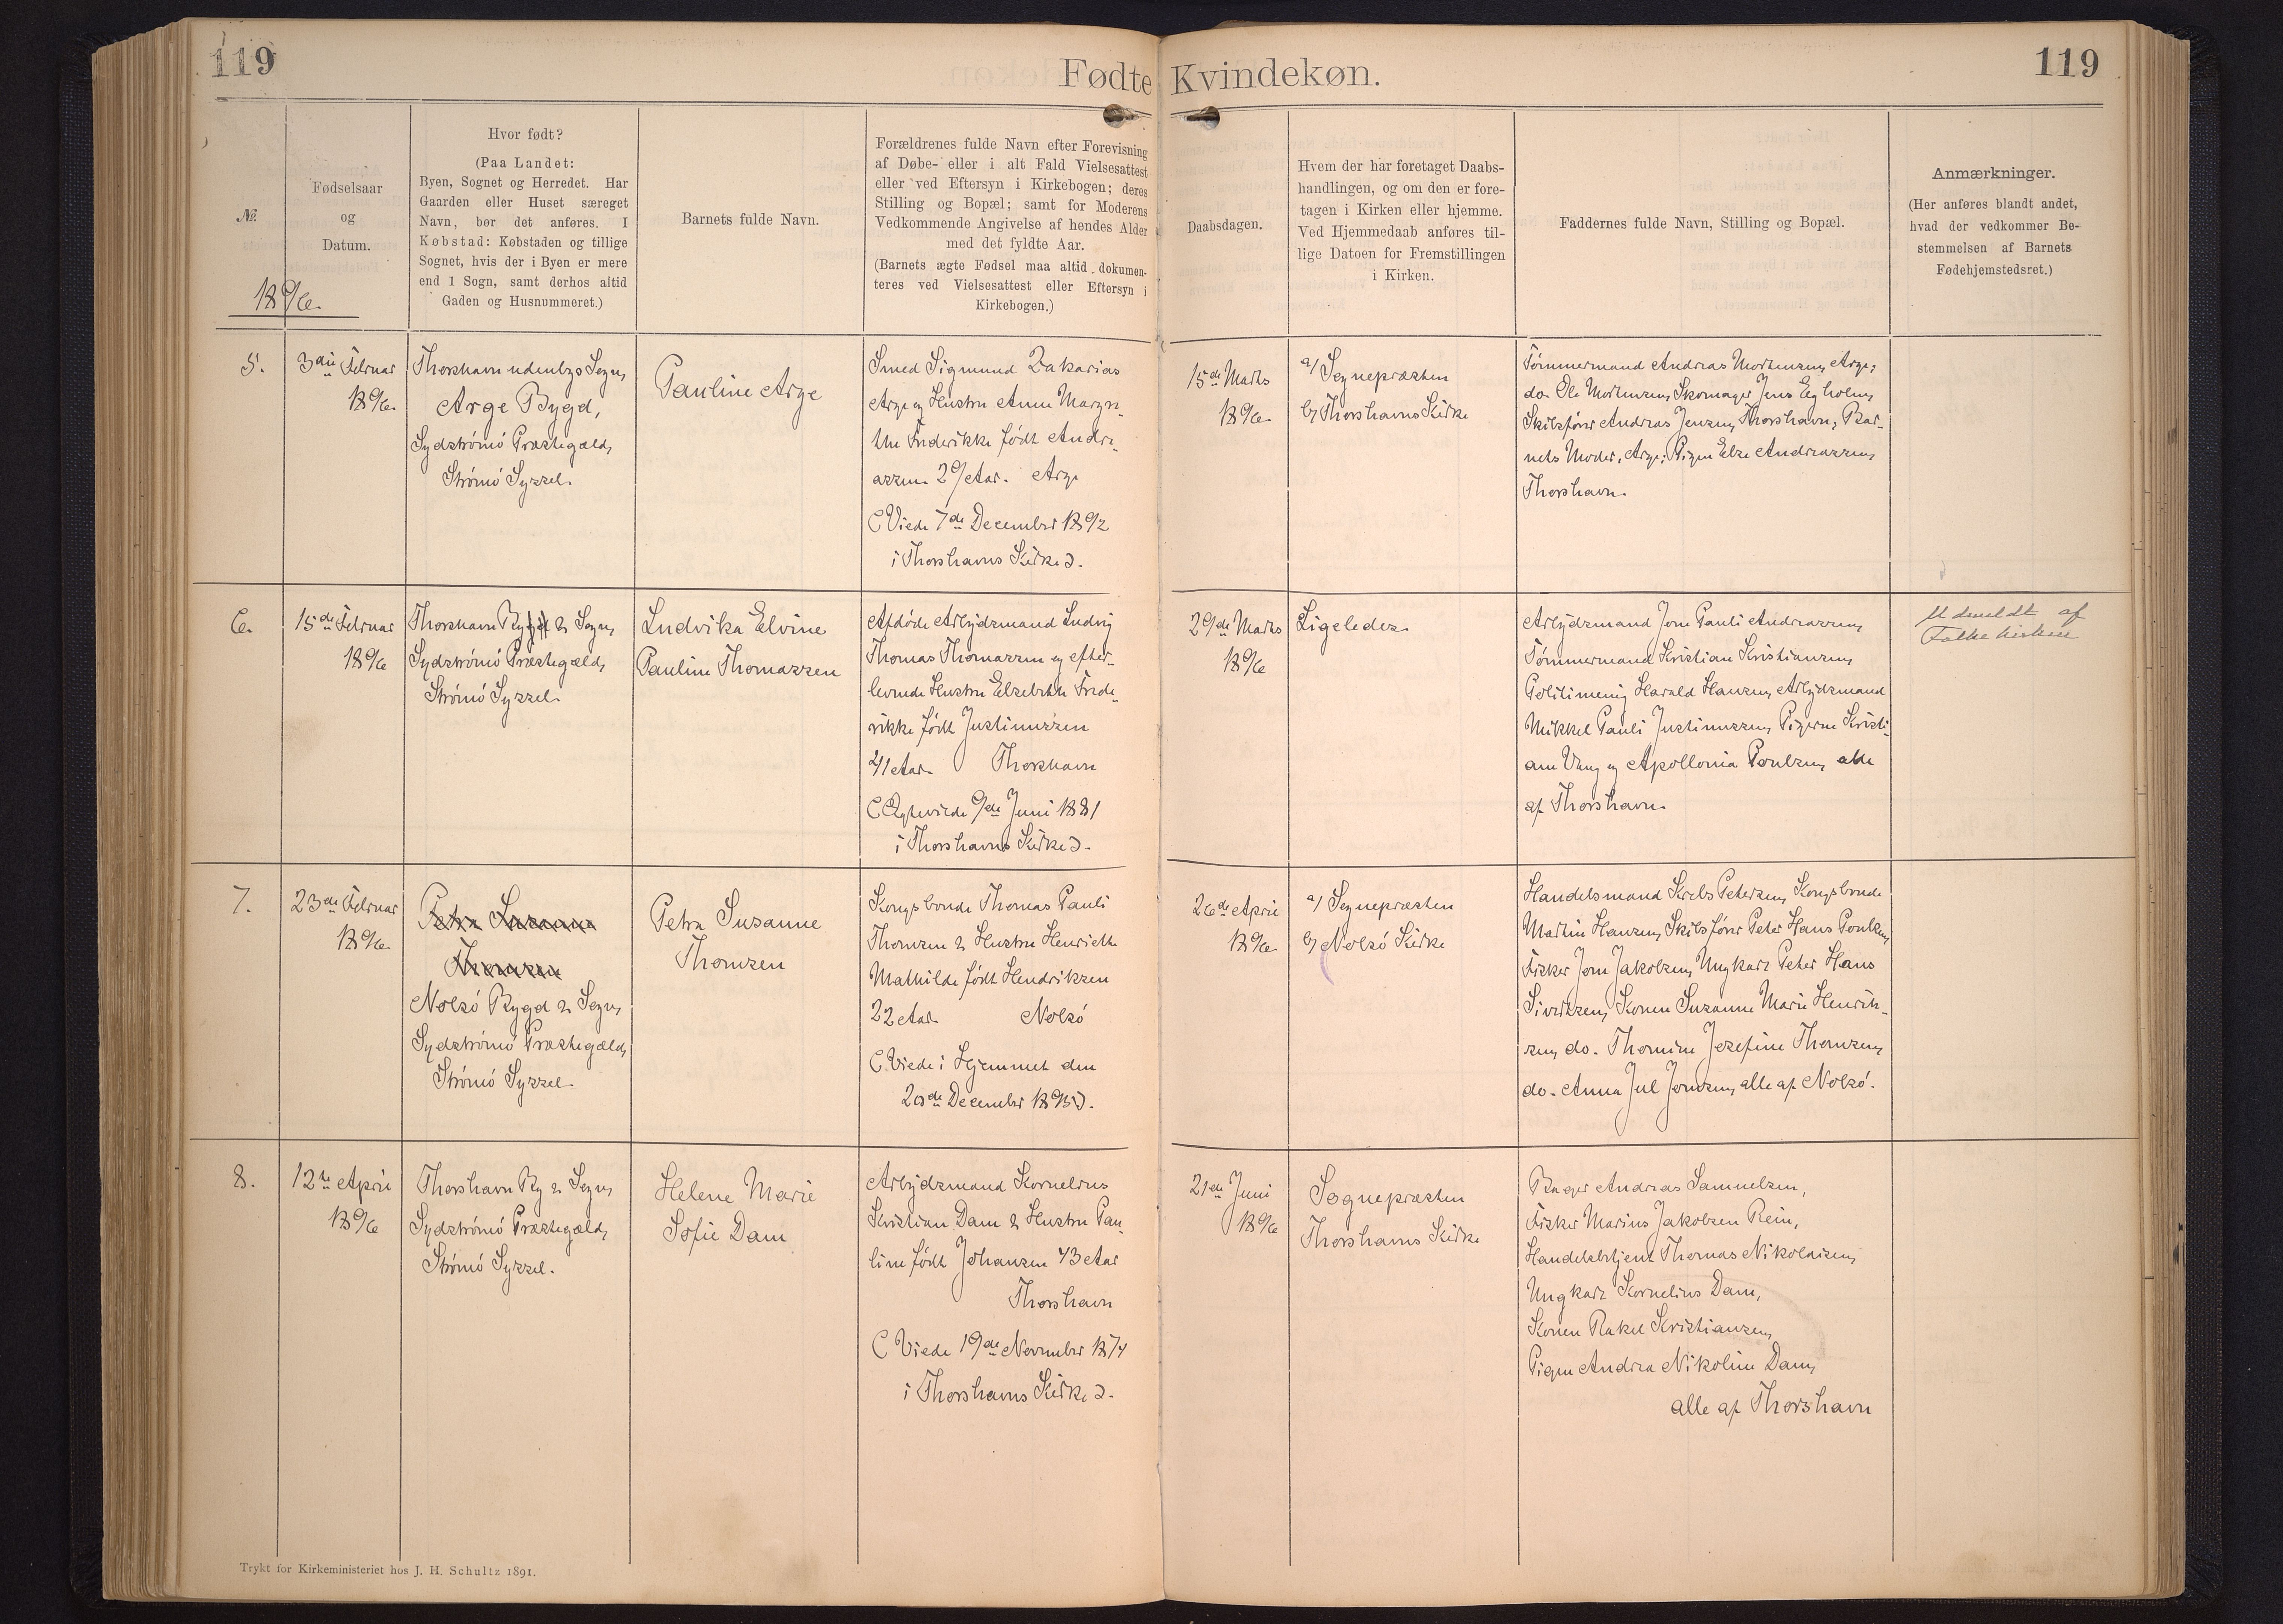 119
Fødte Kvindekøn.
119
№
1896.
Fødselsaar
og
Datum.
Hvor født?
(Paa Landet:
Byen, Sognet og Herredet. Har
Gaarden eller Huset særeget
Navn, bør det anføres. I
Købstad: Købstaden og tillige
Sognet, hvis der i Byen er mere
end 1 Sogn, samt derhos altid
Gaden og Husnummeret.)
Barnets fulde Navn.
Forældrenes fulde Navn efter Forevisning
af Døbe- eller i alt Fald Vielsesattest
eller ved Eftersyn i Kirkebogen; deres
Stilling og Bopæl; samt for Moderens
Vedkommende Angivelse af hendes Alder
med det fyldte Aar.
(Barnets ægte Fødsel maa altid dokumen-
teres ved Vielsesattest eller Eftersyn i
Kirkebogen.)
Daabsdagen.
Hvem der har foretaget Daabs-
handlingen, og om den er fore-
tagen i Kirken eller hjemme.
Ved Hjemmedaab anføres til-
lige Datoen for Fremstillingen
i Kirken.
Faddernes fulde Navn, Stilling og Bopæl.
Anmærkninger.
(Her anføres blandt andet,
hvad der vedkommer Be-
stemmelsen af Barnets
Fødehjemstedsret.)
5.
3die Februar
1896.
Thorshavn udenbys Sogn,
Arge Bygd,
Sydströmö Præstegæld,
Strömö Syssel.
Pauline Arge
Smed Sigmund Zakarias
Arge og Hustru Anne Margre-
the Frederikke født Andre-
assen 29 Aar. Arge
(Viede 7de December 1892
i Thorshavns Kirke).
15de Marts
1896.
a) Sognepræsten
b) Thorshavns Kirke
Tömmermand Andreas Mortensen, Arge;
do. Ole Mortensen, Skomager Jens Egholm,
Skibsfører Andreas Jensen, Thorshavn; Bar-
nets Moder, Arge; Pigen Else Andreassen,
Thorshavn.
6.
15de Februar
1896
Thorshavn By & Sogn,
Sydströmö Præstegæld,
Strömö Syssel.
Ludvika Elvine
Pauline Thomassen
Afdöde Arbejdsmand Ludvig
Thomas Thomassen og efter-
levende Hustru Elsebeth Frede-
rikke født Justinussen
41 Aar. Thorshavn
(Egteviede 9de Juni 1881
i Thorshavns Kirke).
29de Marts
1896
Ligeledes.
Arbejdsmand Jom Pauli Andreassen,
Tömmermand Kristian Kristiansen,
Politimenig Harald Hansen, Arbejdsmand
Mikkel Pauli Justinussen, Pigerne Kristi-
ane Vang og Apollonia Poulsen, alle
af Thorshavn.
Udmeldt af
Folkekirken
7.
23de Februar
1896.
Petra Susanne
Thomsen
Nolsö Bygd & Sogn,
Sydströmö Præstegæld,
Strömö Syssel.
Petra Susanne
Thomsen
Kongsbonde Thomas Pauli
Thomsen & Hustru Henriette
Mathilde født Hendriksen
22 Aar. Nolsö
(Viede i Hjemmet den
20de December 1895).
26de April
1896.
a) Sognepræsten
b) Nolsö Kirke
Handelsmand Krebs Petersen, Kongsbonde
Martin Hansen, Skibsfører Peter Hans Poulsen,
Fisker Jom Jakobsen, Ungkarl Peter Hans
Sivertsen, Konen Susanne Marie Henrik-
sen, do. Thomine Josefine Thomsen,
do. Anna Jul Joensen, alle af Nolsö.
8.
12te April
1896
Thorshavn By & Sogn,
Sydströmö Præstegæld,
Strömö Syssel.
Helene Marie
Sofie Dam
Arbejdsmand Kornelius
Kristian Dam & Hustru Pau-
line født Johansen 43 Aar
Thorshavn
(Viede 19de November 1874
i Thorshavns Kirke).
21de Juni
1896
Sognepræsten
Thorshavns Kirke
Bager Andreas Samuelsen,
Fisker Marius Jakobsen Rein,
Handelsbetjent Thomas Nikolaisen,
Ungkarl Kornelius Dam,
Konen Rakel Kristiansen,
Pigen Andrea Nikoline Dam,
alle af Thorshavn
Trykt for Kirkeministeriet hos J. H. Schultz 1891.